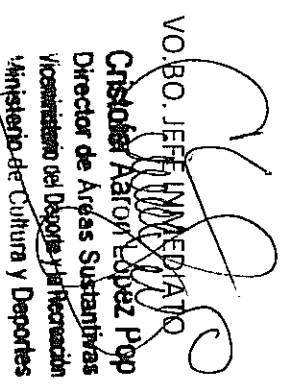 VO.BO. JEFE INMEDIATO
Cristofer Aaron López Pop
Director de Áreas Sustantivas
Viceministerio del Deporte y la Recreación
Ministerio de Cultura y Deportes